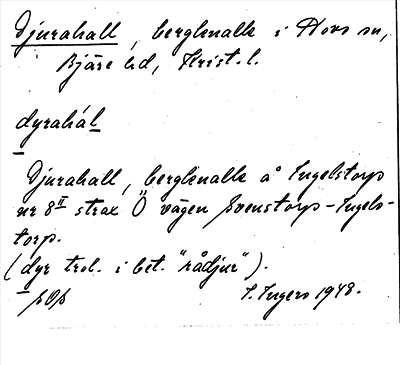 Djurahall, bergknalle i Hovs sn,
Bjäre hd, Krist. l.
dyrahál
Djurahall, bergknalle å Ingelstorp
nr 8II strax Ö vägen Svenstorp-Ingels-
torp.
(dyr trol. i bet. "rådjur").
I. Ingers 1948.